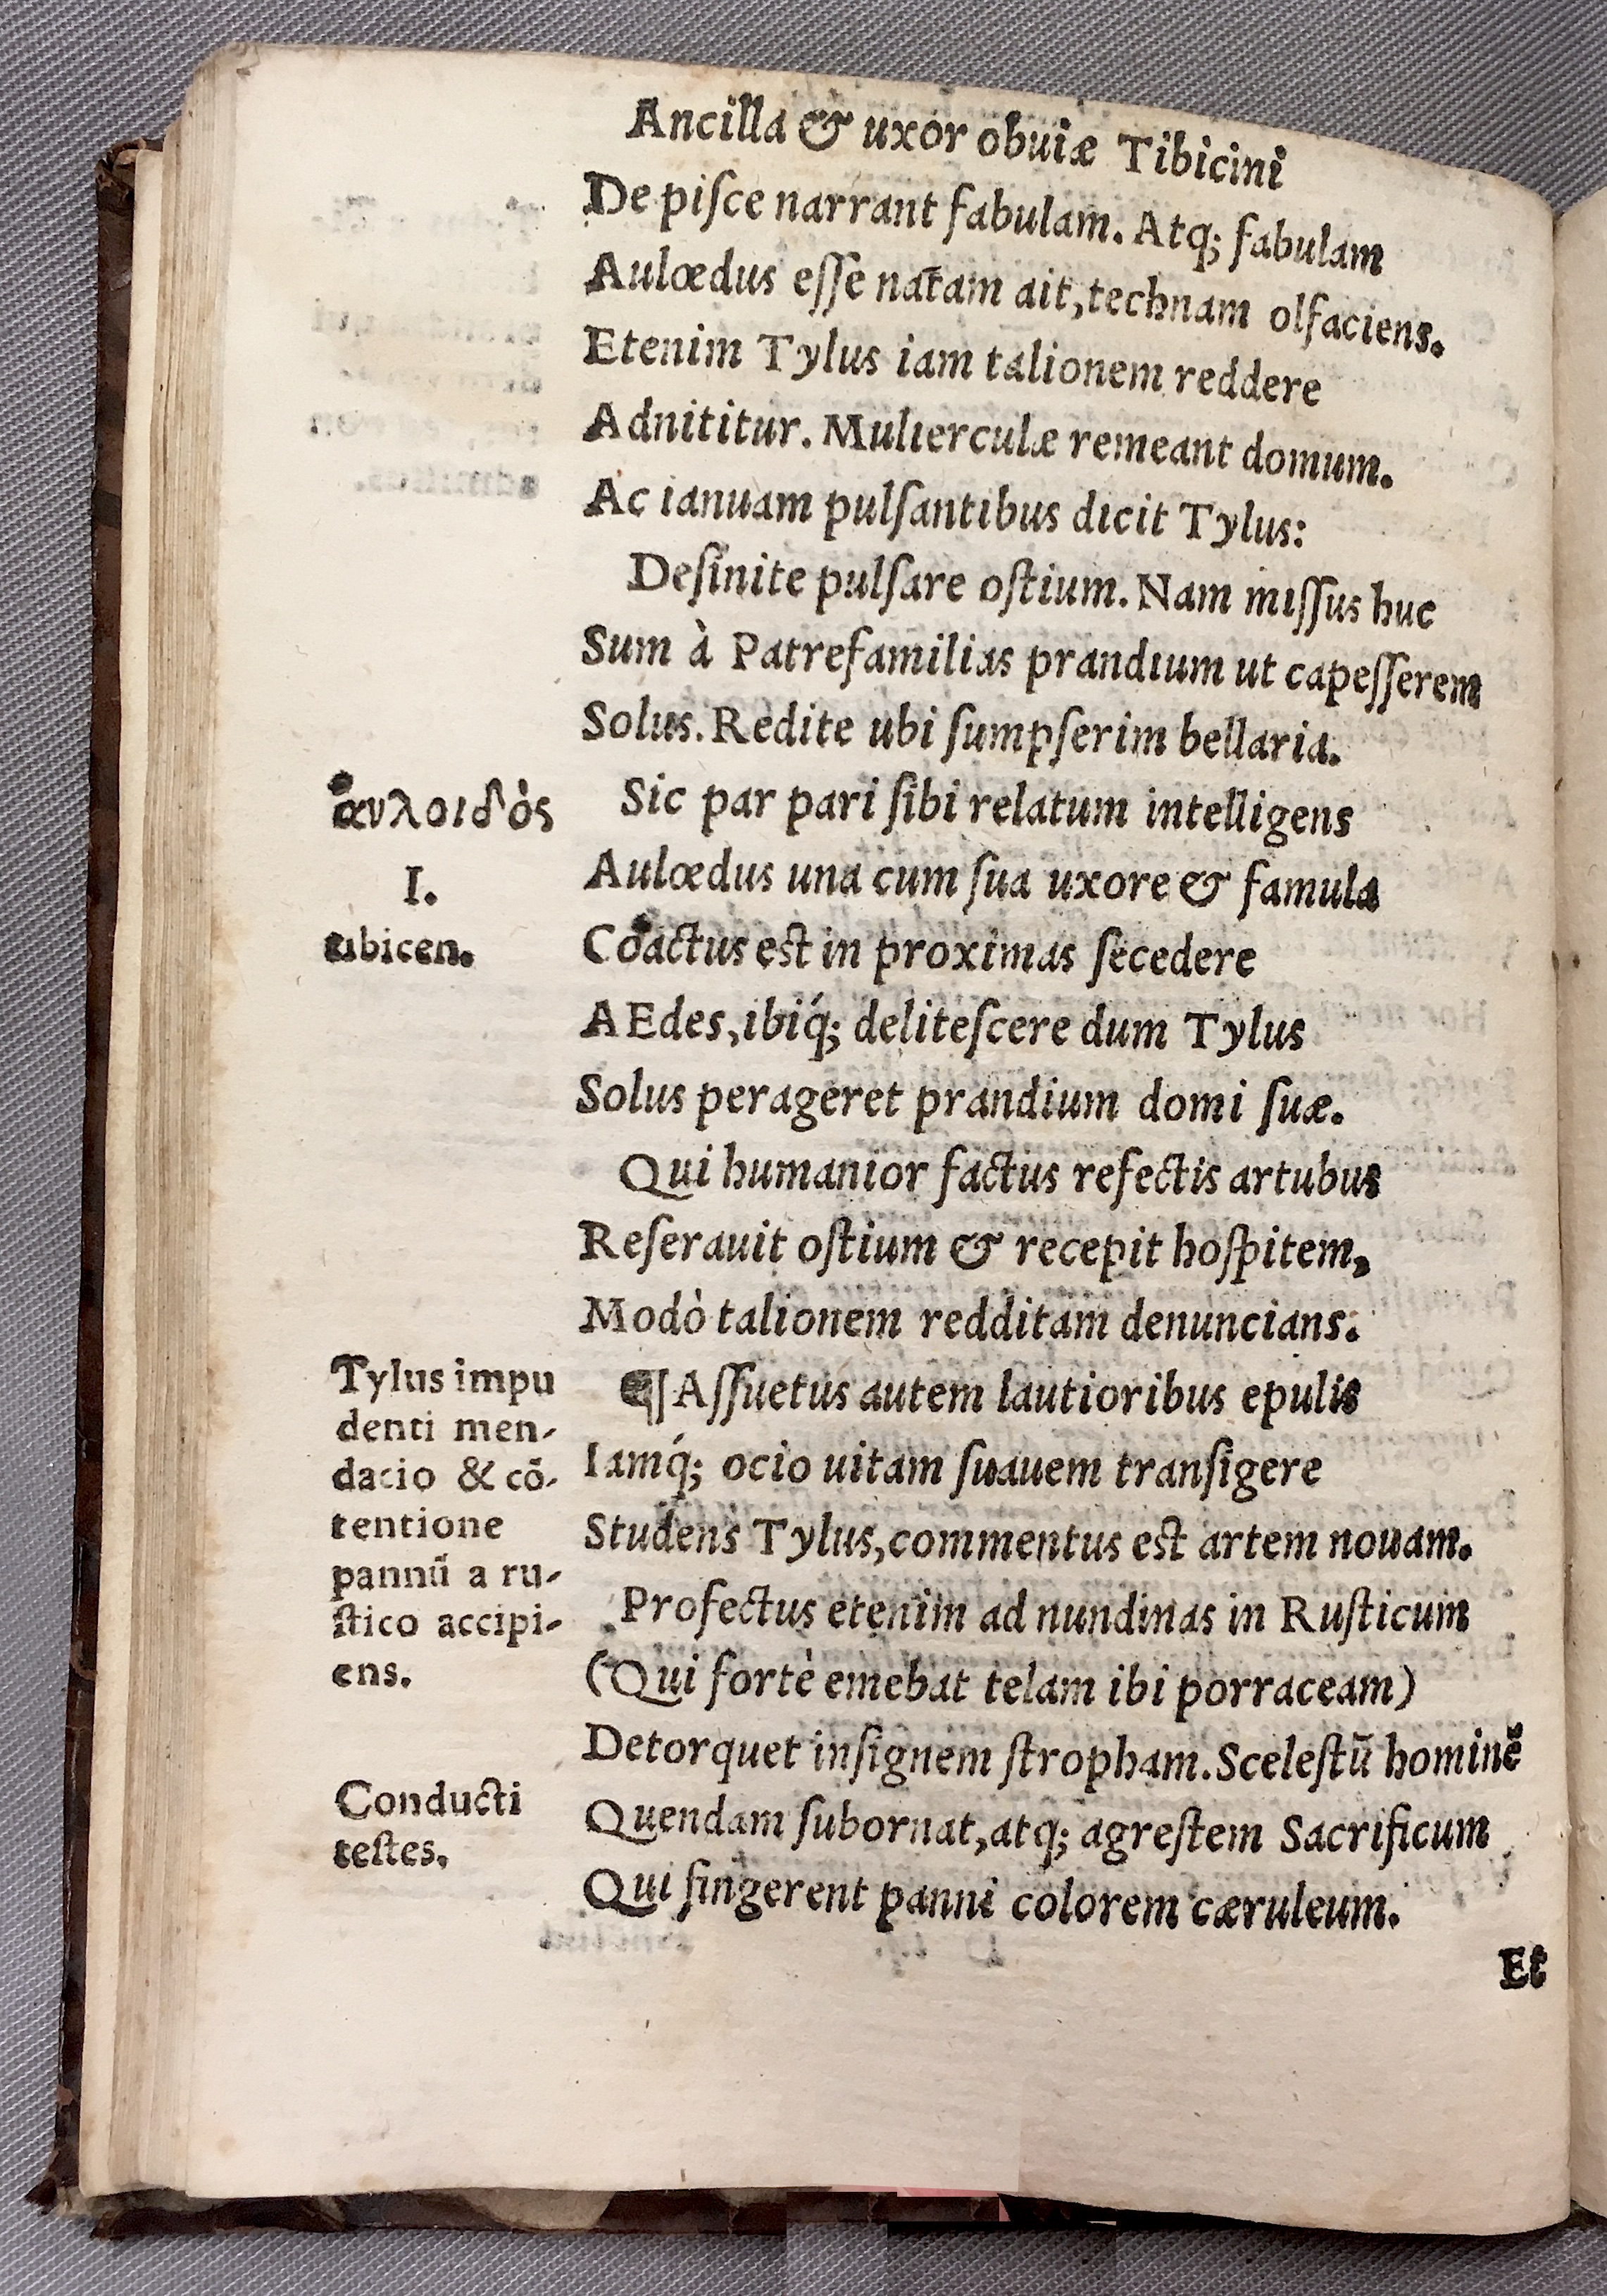 Ancilla & uxor obuiæ Tibicini
De piſce narrant fabulam. Atq; fabulam
Aulœdus eſſe natam ait, technam olfaciens.
Etenim Tylus iam talionem reddere
Adnititur. Mulierculæ remeant domum.
Ac ianuam pulſantibus dicit Tylus:
Deſinite pulſare oſtium. Nam miſſus huc
Sum à Patrefamilias prandium ut capeſſerem
Solus. Redite ubi ſumpſerim bellaria.
Sic par pari ſibi relatum intelligens
Aulœdus una cum ſua uxore & famula
Coactus est in proximas ſecedere
AEdes, ibiq́; deliteſcere dum Tylus
Solus perageret prandium domi ſuæ.
Qui humanior factus refectis artubus
Reſerauit oſtium & recepit hoſpitem,
Modò talionem redditam denuncians.
¶ Aſſuetus autem lautioribus epulis
Iamq́; ocio uitam ſuauem tranſigere
Studens Tylus, commentus est artem nouam.
Profectus etenim ad nundinas in Ruſticum
(Qui fortè emebat telam ibi porraceam)
Detorquet inſignem ſtropham. Sceleſtū hominē
Quendam ſubornat, atq; agreſtem Sacrificum
Qui fingerent panni colorem cæruleum.
Et
ἀυλοιδὸς
I.
tibicen.
Tylus impu
denti men-
dacio & cō-
tentione
pannū a ru-
ſtico accipi-
ens.
Conducti
teſtes.